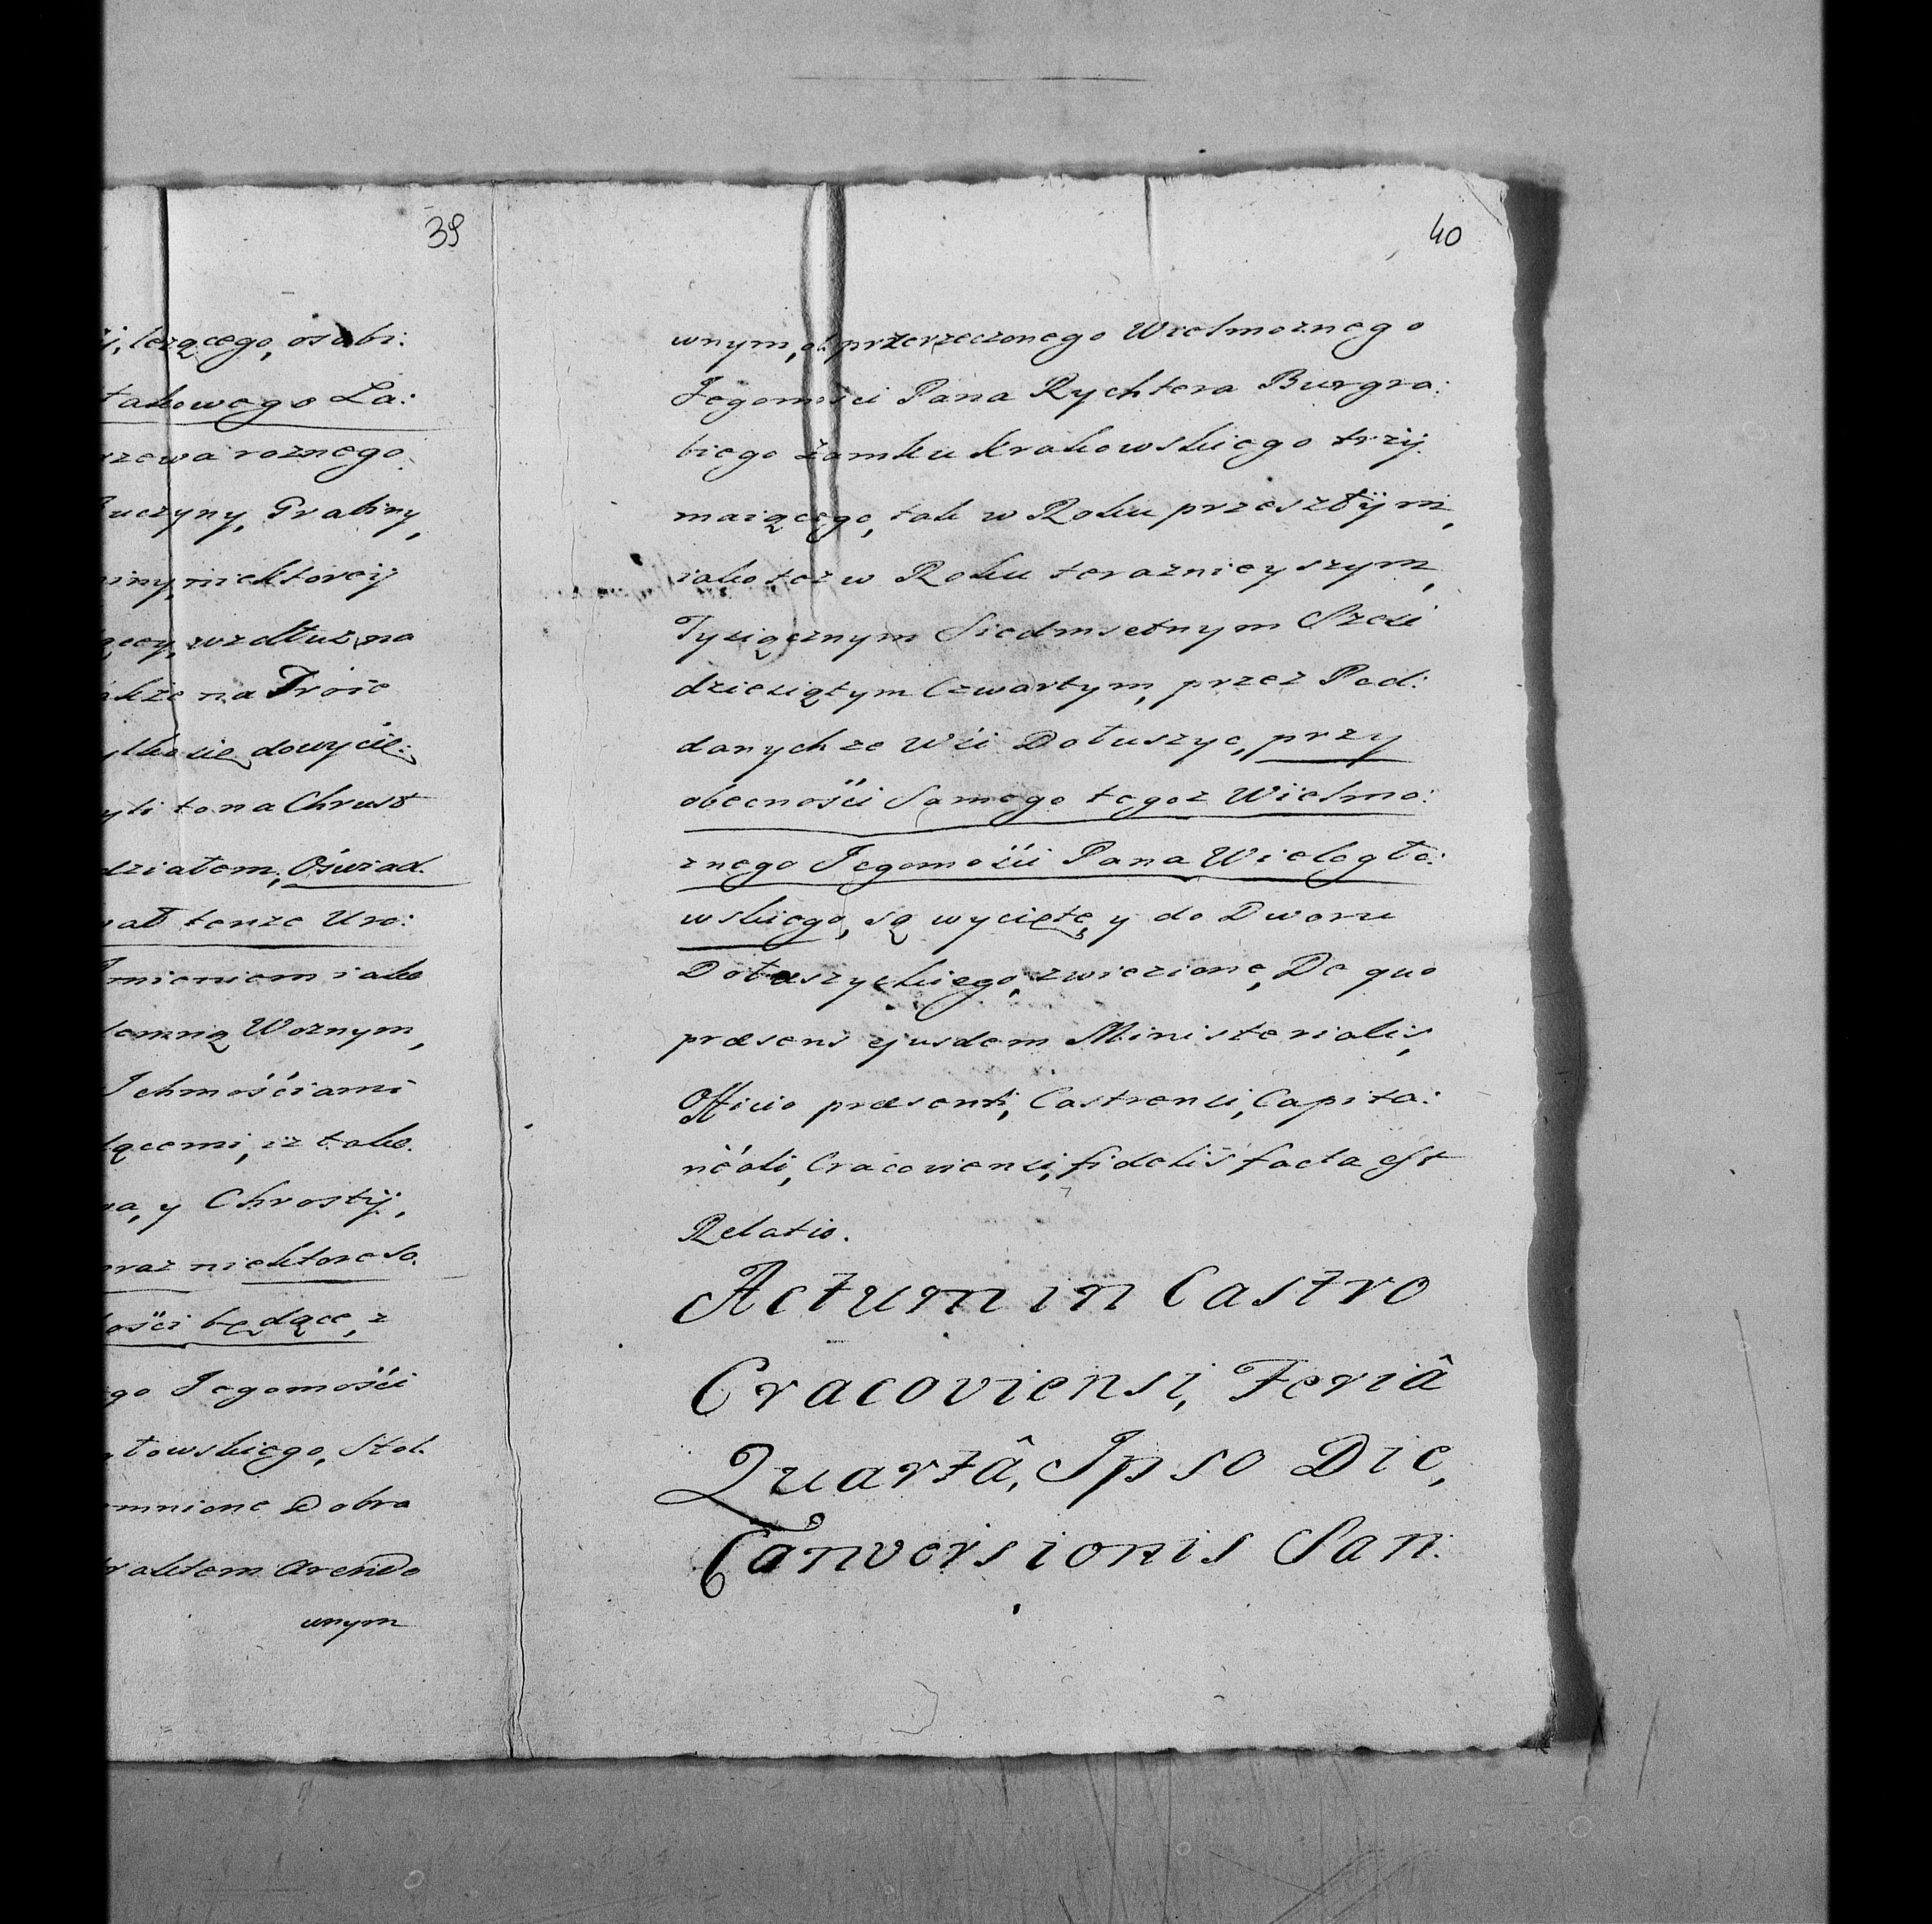 39
leżącego, osobi:
takowego La:
rzewa roznego.
uczyny, Grabiny,
niektoreij
wzdłuz na
na Troie
sie dowycie:
to na Chrust
działem, Oświad.
tenze Uro:
Imieniem iako
Woznym,
Ichmościami
iz tako.
y Chrostij,
niektore So.
będące, z
go Jegomości
towskiego, Stol.
mnione Dobra
Arendo
wnym
40
wnym, od przerzeczonego Wielmoznego
Jegomości Pana Rychtera Burgra:
biego Zamku Krakowskiego trzij.
maiącego, tak w Roku przeszłÿm,
iako tez w Roku teraznieyszym,
Tysiącznym Siedmsetnym Szesć
dziesiątym Czwartym, przez Pod:
danych ze Wśi Dołuszyc, przy
obecnośći Samego tegoz Wielmo:
znego Jegomośći Pana Wielogło:
wskiego, są wycięte, y do Dworu
Dołuszyckiego, zwiezione, De quo
præsens ejusdem Ministerialis,
Officio præsenti, Castrensi, Capita:
neali, Cracoviensi, fidelis facta est
Relatio.
Actum in Castro
Cracoviensi, Feriâ
Quartâ, Ipso Die,
Conversionis San: